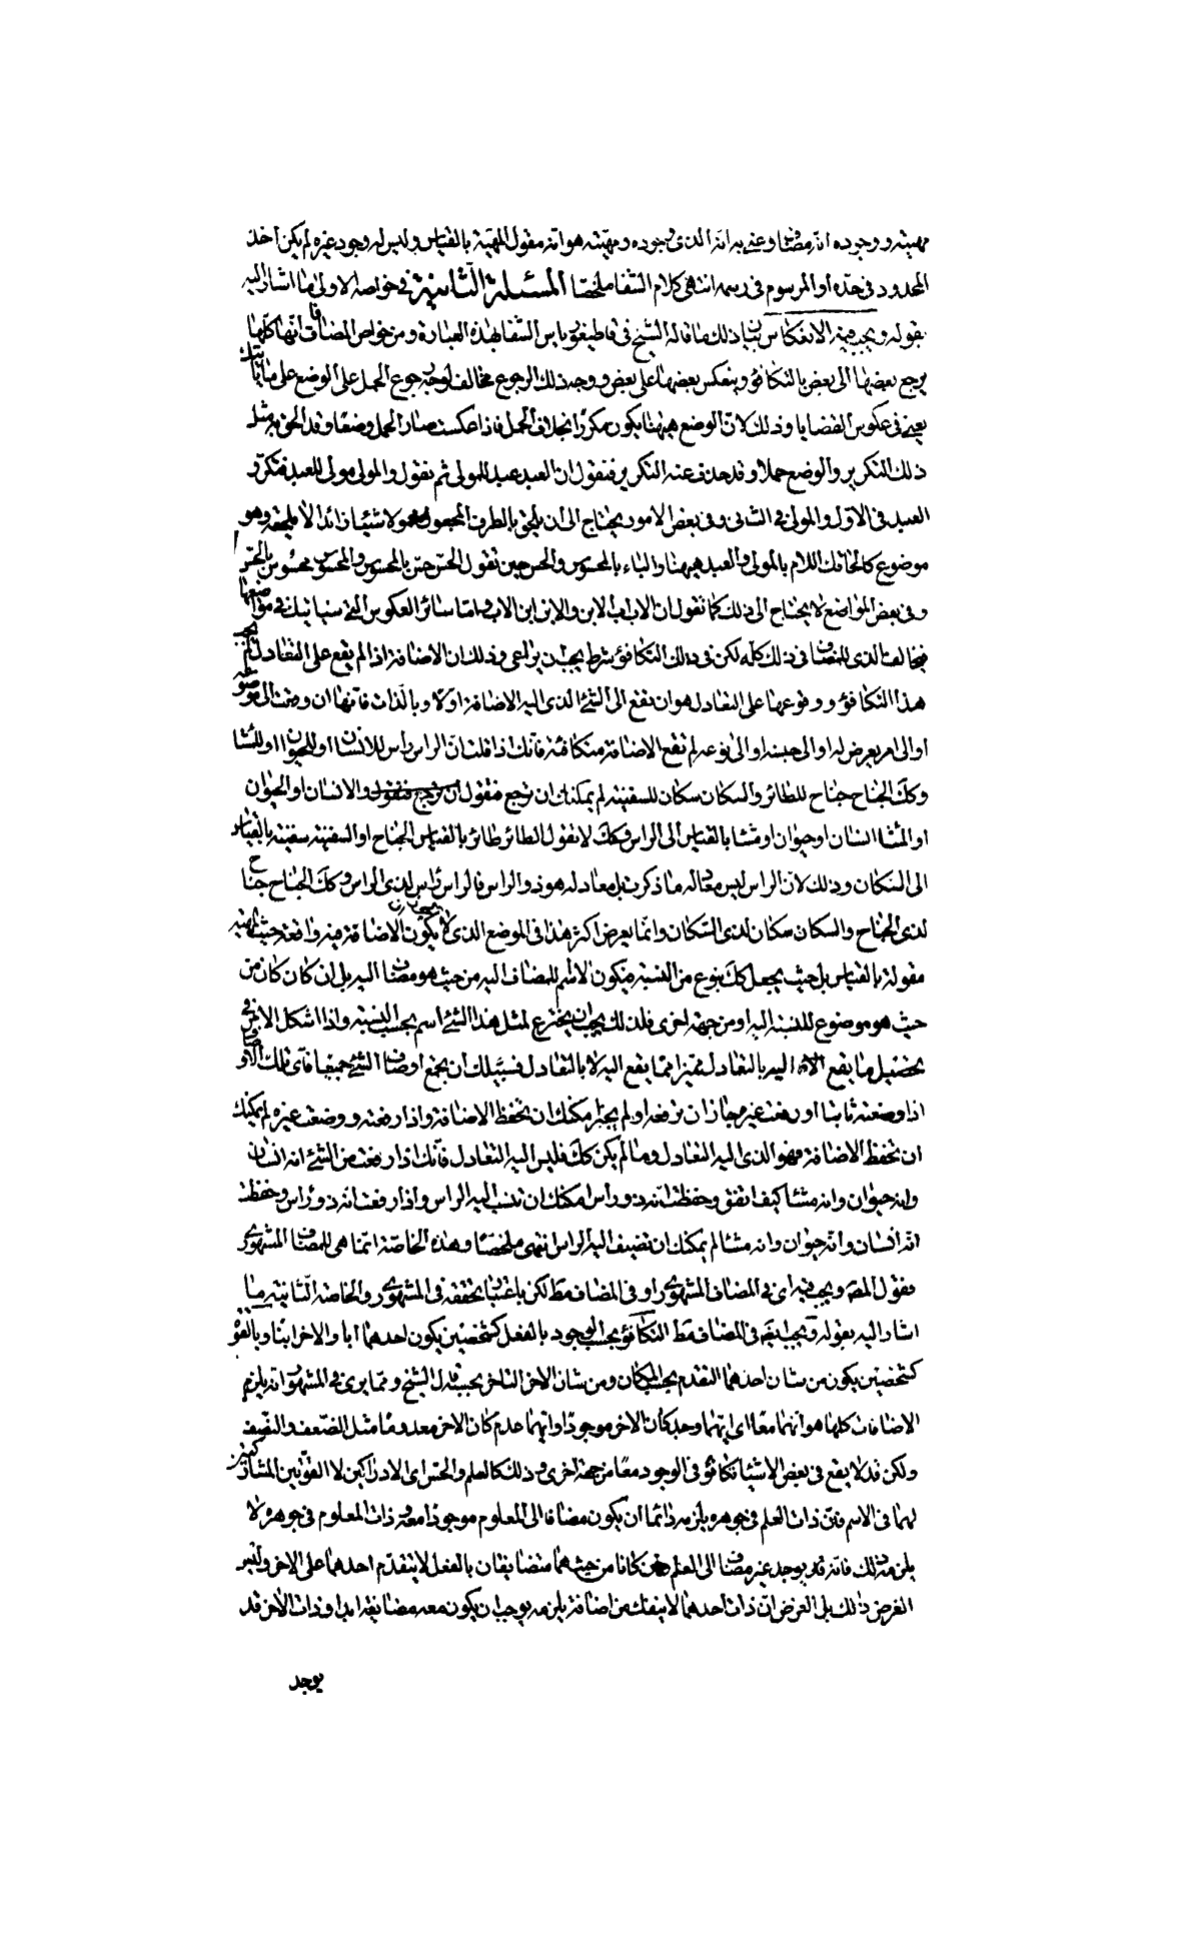 مهيته ووجوده انه مضاف وعنى به انه الذى وجوده ومهيته هو انه مقول المهية بالقياس وليس له وجود غيره لم يكن اخذ
المحدود فى حده او المرسوم فى رسمه انتهى كلام الشفا ملخصا المسئلة الثانية فى خواصه الاولى ما اشار اليه
بقوله ويجب فيه الانعكاس بيان ذلك ما قاله الشيخ فى قاطيغورياس الشفا بهذه العبارة ومن خواص المضافات انها كلها
يرجع بعضها الى بعض بالتكافؤ وينعكس بعضها على بعض ووجه ذلك الرجوع مخالف لوجه رجوع الحمل على الوضع على ما ياتيك
يعنى فى عكوس القضايا وذلك لان الوضع ههنا يكون مكررا بخلاف الحمل فاذا عكست صار الحمل وضعا وقد الحق به مثل
ذلك التكرير والوضع حملا وقد حذف عنه التكرير فنقول ان العبد عبد للمولى ثم نقول والمولى مولى للعبد فتكرر
العبد فى الاول والمولى فى الثانى وفى بعض الامور يحتاج الى ان يلحق بالطرف المجعول محمولا شيئا زائدا لا يلحقه وهو
موضوع كالحاقك اللام بالمولى والعبد ههنا والباء بالمحسوس والحس حين تقول الحس حس بالمحسوس والمحسوس محسوس بالحس
وفى بعض المواضع لا يحتاج الى ذلك كما تقول ان الاب اب الابن والابن ابن الاب واما سائر العكوس التى سياتيك فى مواضعها
فيخالف الذى للمضاف فى ذلك كله لكن فى ذلك التكافؤ شرط يجب ان يراعى وذلك ان الاضافة اذا لم يقع على التعادل لم يجب
هذا التكافؤ ووقوعها على التعادل هو ان تقع الى الشئ الذى اليه الاضافة اولا وبالذات فانها ان وقعت الى موضوعه
او الى امر يعرض له او الى جنسه او الى نوعه لم تقع الاضافة متكافئة فانك اذا قلت ان الراس راس للانسان او للحيوان او للمشا
وكك الجناح جناح للطائر والسكان سكان للسفينة لم يمكنك ان ترجع فتقول والانسان او الحيوان
او المشا انسان او حيوان او مشا بالقياس الى الراس وكك لا تقول الطائر طائر بالقياس الجناح او السفينة سفينة بالقياس
الى السكان وذلك لان الراس ليس معادله ما ذكرت بل معادله هو ذو الراس فالراس راس لذى الراس وكك الجناح جناح
لذى الجناح والسكان سكان لذى السكان وانما يعرض اكثر هذا فى الموضع الذى لا يكون الاضافة فيه واقعة حيث المهية
مقولة بالقياس بل حيث يجعل كك بنوع من النسبة فيكون الاسم للمضاف اليه من حيث هو مضاف اليه بل ان كان كان من
حيث هو موضوع للنسبة اليه او من جهة اخرى فلذلك يجب ان يخترع لمثل هذا الشئ اسم بحسب النسبة واذا اشكل الامر فى
تحصيل ما يقع اليه بالتعادل متميزا مما يقع اليه لا بالتعادل فسبيلك ان يجمع اوصاف الشئ جميعا فاى تلك الاوصاف
اذا وضعته ثابتا او رفعت غيره جاز ان ترفعه او لم يجز مكنك ان تحفظ الاضافة واذا رفعته ووضعت غيره لم يمكنك
ان تحفظ الاضافة فهو الذى اليه التعادل وما لم يكن كك فليس اليه التعادل فانك اذا رفعت من الشئ انه انسان
وانه حيوان وانه مشا كيف اتفق وحفظت انه ذو راس امكنك ان تنسب اليه الراس واذا رفعت انه ذو راس وحفظت
انه انسان وانه حيوان وانه مشا لم يمكنك ان تضيف اليه الراس انتهى ملخصا وهذه الخاصة انما هى للمضاف المشهورى
فقول المصه ويجب فيه اى فى المضاف المشهورى او فى المضاف مط لكن باعتبار تحققه فى المشهورى والخاصة الثانية ما
اشار اليه بقوله ويجب ايضا فى المضاف مط التكافؤ بحسب الوجود بالفعل كشخصين يكون احدهما ابا والاخر ابنا وبالقوة
كشخصين يكون من شان احدهما التقدم بحسب المكان ومن شان الاخر التاخر بحسبه قال الشيخ ومما يرى فى المشهور انه يلزم
الاضافات كلها هو انهما معا اى ايهما وجد كان الاخر موجودا وايهما عدم كان الاخر معدوما مثل الضعف والنصف
ولكن قد لا يقع فى بعض الاشياء تكافؤ فى الوجود معا من جهة اخرى وذلك كالعلم والحس اى الادراكين لا القوتين المشاركتين
لهما فى الاسم فان ذات العلم فى جوهره يلزمه دائما ان يكون مضافا الى المعلوم موجودا معه وذات المعلوم فى جوهره لا
يلزمه ذلك فانه قد يوجد غير مضاف الى العلم كانا من حيث هما متضايفان بالفعل لا يتقدم احدهما على الاخر وليس
الغرض ذلك بل الغرض ان ذات احدهما لا ينفك من اضافة يلزمه يوجب ان يكون معه مضايفه ابدا وذات الاخر قد
يوجد